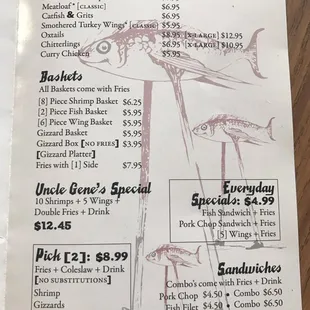 Meatloaf* [CLASSIC] $6.95
Catfish & Grits $6.95
Smothered Turkey Wings* [CLASSIC] $5.95
Oxtails $8.95 [X-LARGE] $12.95
Chitterlings $6.95 [X-LARGE] $10.95
Curry Chicken $5.95
Baskets
All Baskets come with Fries
[8] Piece Shrimp Basket $6.25
[2] Piece Fish Basket $5.95
[6] Piece Wing Basket $5.95
Gizzard Basket $5.95
Gizzard Box [NO FRIES] $3.95
[Gizzard Platter]
Fries with [1] Side $7.95
Uncle Gene's Special
10 Shrimps + 5 Wings +
Double Fries + Drink
$12.45
Everyday
Specials: $4.99
Fish Sandwich + Fries
Pork Chop Sandwich + Fries
[5] Wings + Fries
Pick [2]: $8.99
Fries + Coleslaw + Drink
[NO SUBSTITUTIONS]
Shrimp
Gizzards
Sandwiches
Combo's come with Fries + Drink
Pork Chop $4.50 • Combo $6.50
Fish Filet $4.50 • Combo $6.50